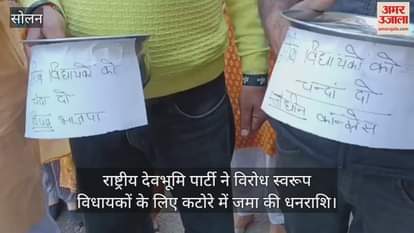 सोलन
अमर उजाला
amarujala.com
विधायकों को
चंदा दो
भाजपा
विधायकों को
चन्दा दो
कॉन्ग्रेस
राष्ट्रीय देवभूमि पार्टी ने विरोध स्वरूप
विधायकों के लिए कटोरे में जमा की धनराशि।